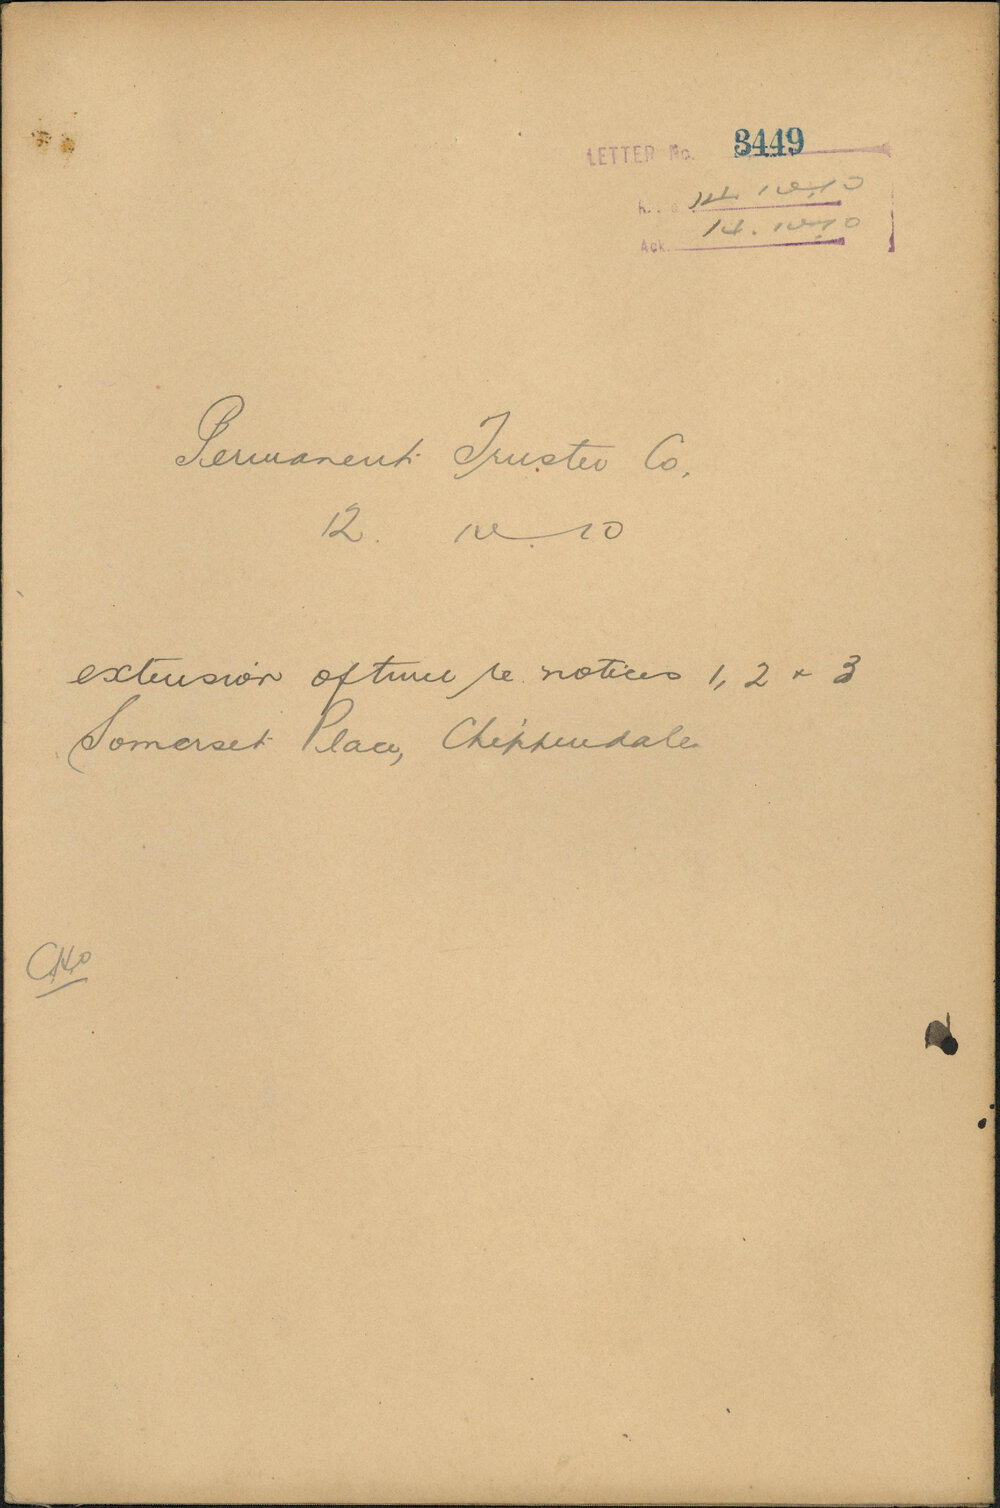 LETTER No. 3449
14. 10
Ack. 14. 10
Permanent Trustee Co.
12. 10
extension of time re notices 1, 2 + 3
Somerset Place, Chippendale
CHO